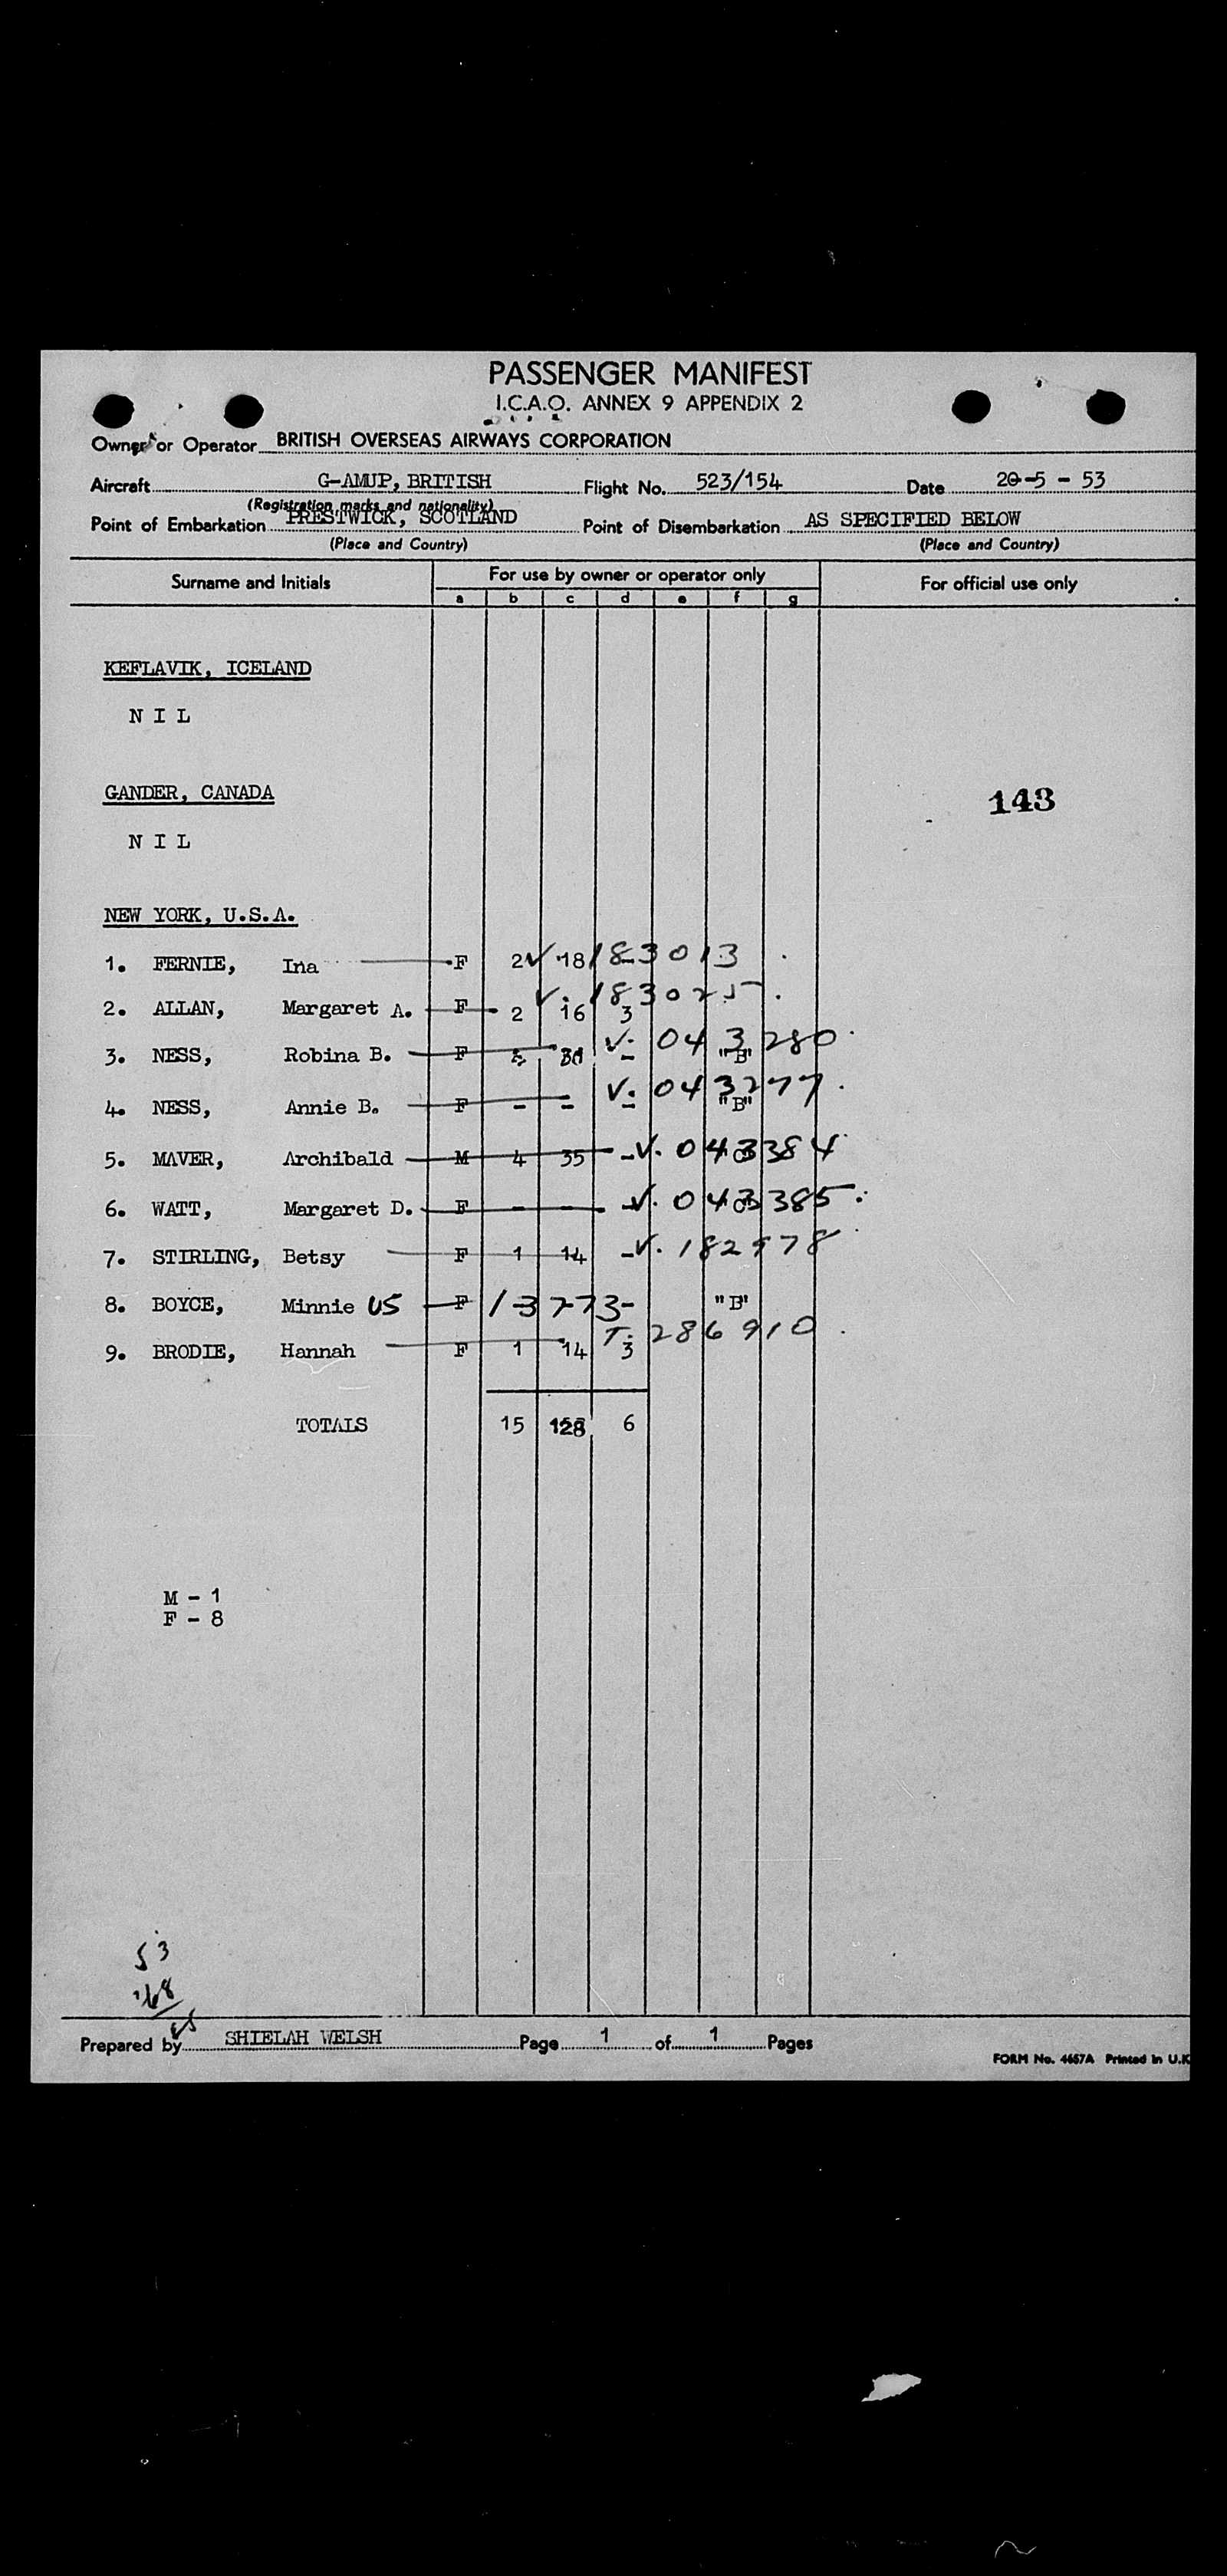 PASSENGER MANIFEST
I.C.A.O. ANNEX 9 APPENDIX 2
Owner or Operator BRITISH OVERSEAS AIRWAYS CORPORATION
Aircraft G-AMUP, BRITISH Flight No. 523/154 Date 20-5-53
(Registration marks and nationality)
Point of Embarkation PRESTWICK, SCOTLAND Point of Disembarkation AS SPECIFIED BELOW
(Place and Country) (Place and Country)
Surname and Initials For use by owner or operator only For official use only
a b c d e f g
KEFLAVIK, ICELAND
N I L
GANDER, CANADA
143
N I L
NEW YORK, U.S.A.
1. FERNIE, Ina F 2 18 V 183013
2. ALLAN, Margaret A. F 2 16 3 V. 183025
3. NESS, Robina B. F - "B" V. 043280
4. NESS, Annie B. F - - - "B" V. 043277
5. MAVER, Archibald M 4 35 - V. 043384
6. WATT, Margaret D. F - - - V. 043385
7. STIRLING, Betsy F 1 14 - V. 182978
8. BOYCE, Minnie US F "B"
9. BRODIE, Hannah F 1 14 3 T. 286910
TOTALS 15 128 6
M - 1
F - 8
53
Prepared by SHIELAH WELSH Page 1 of 1 Pages
FORM No. 4657A Printed in U.K